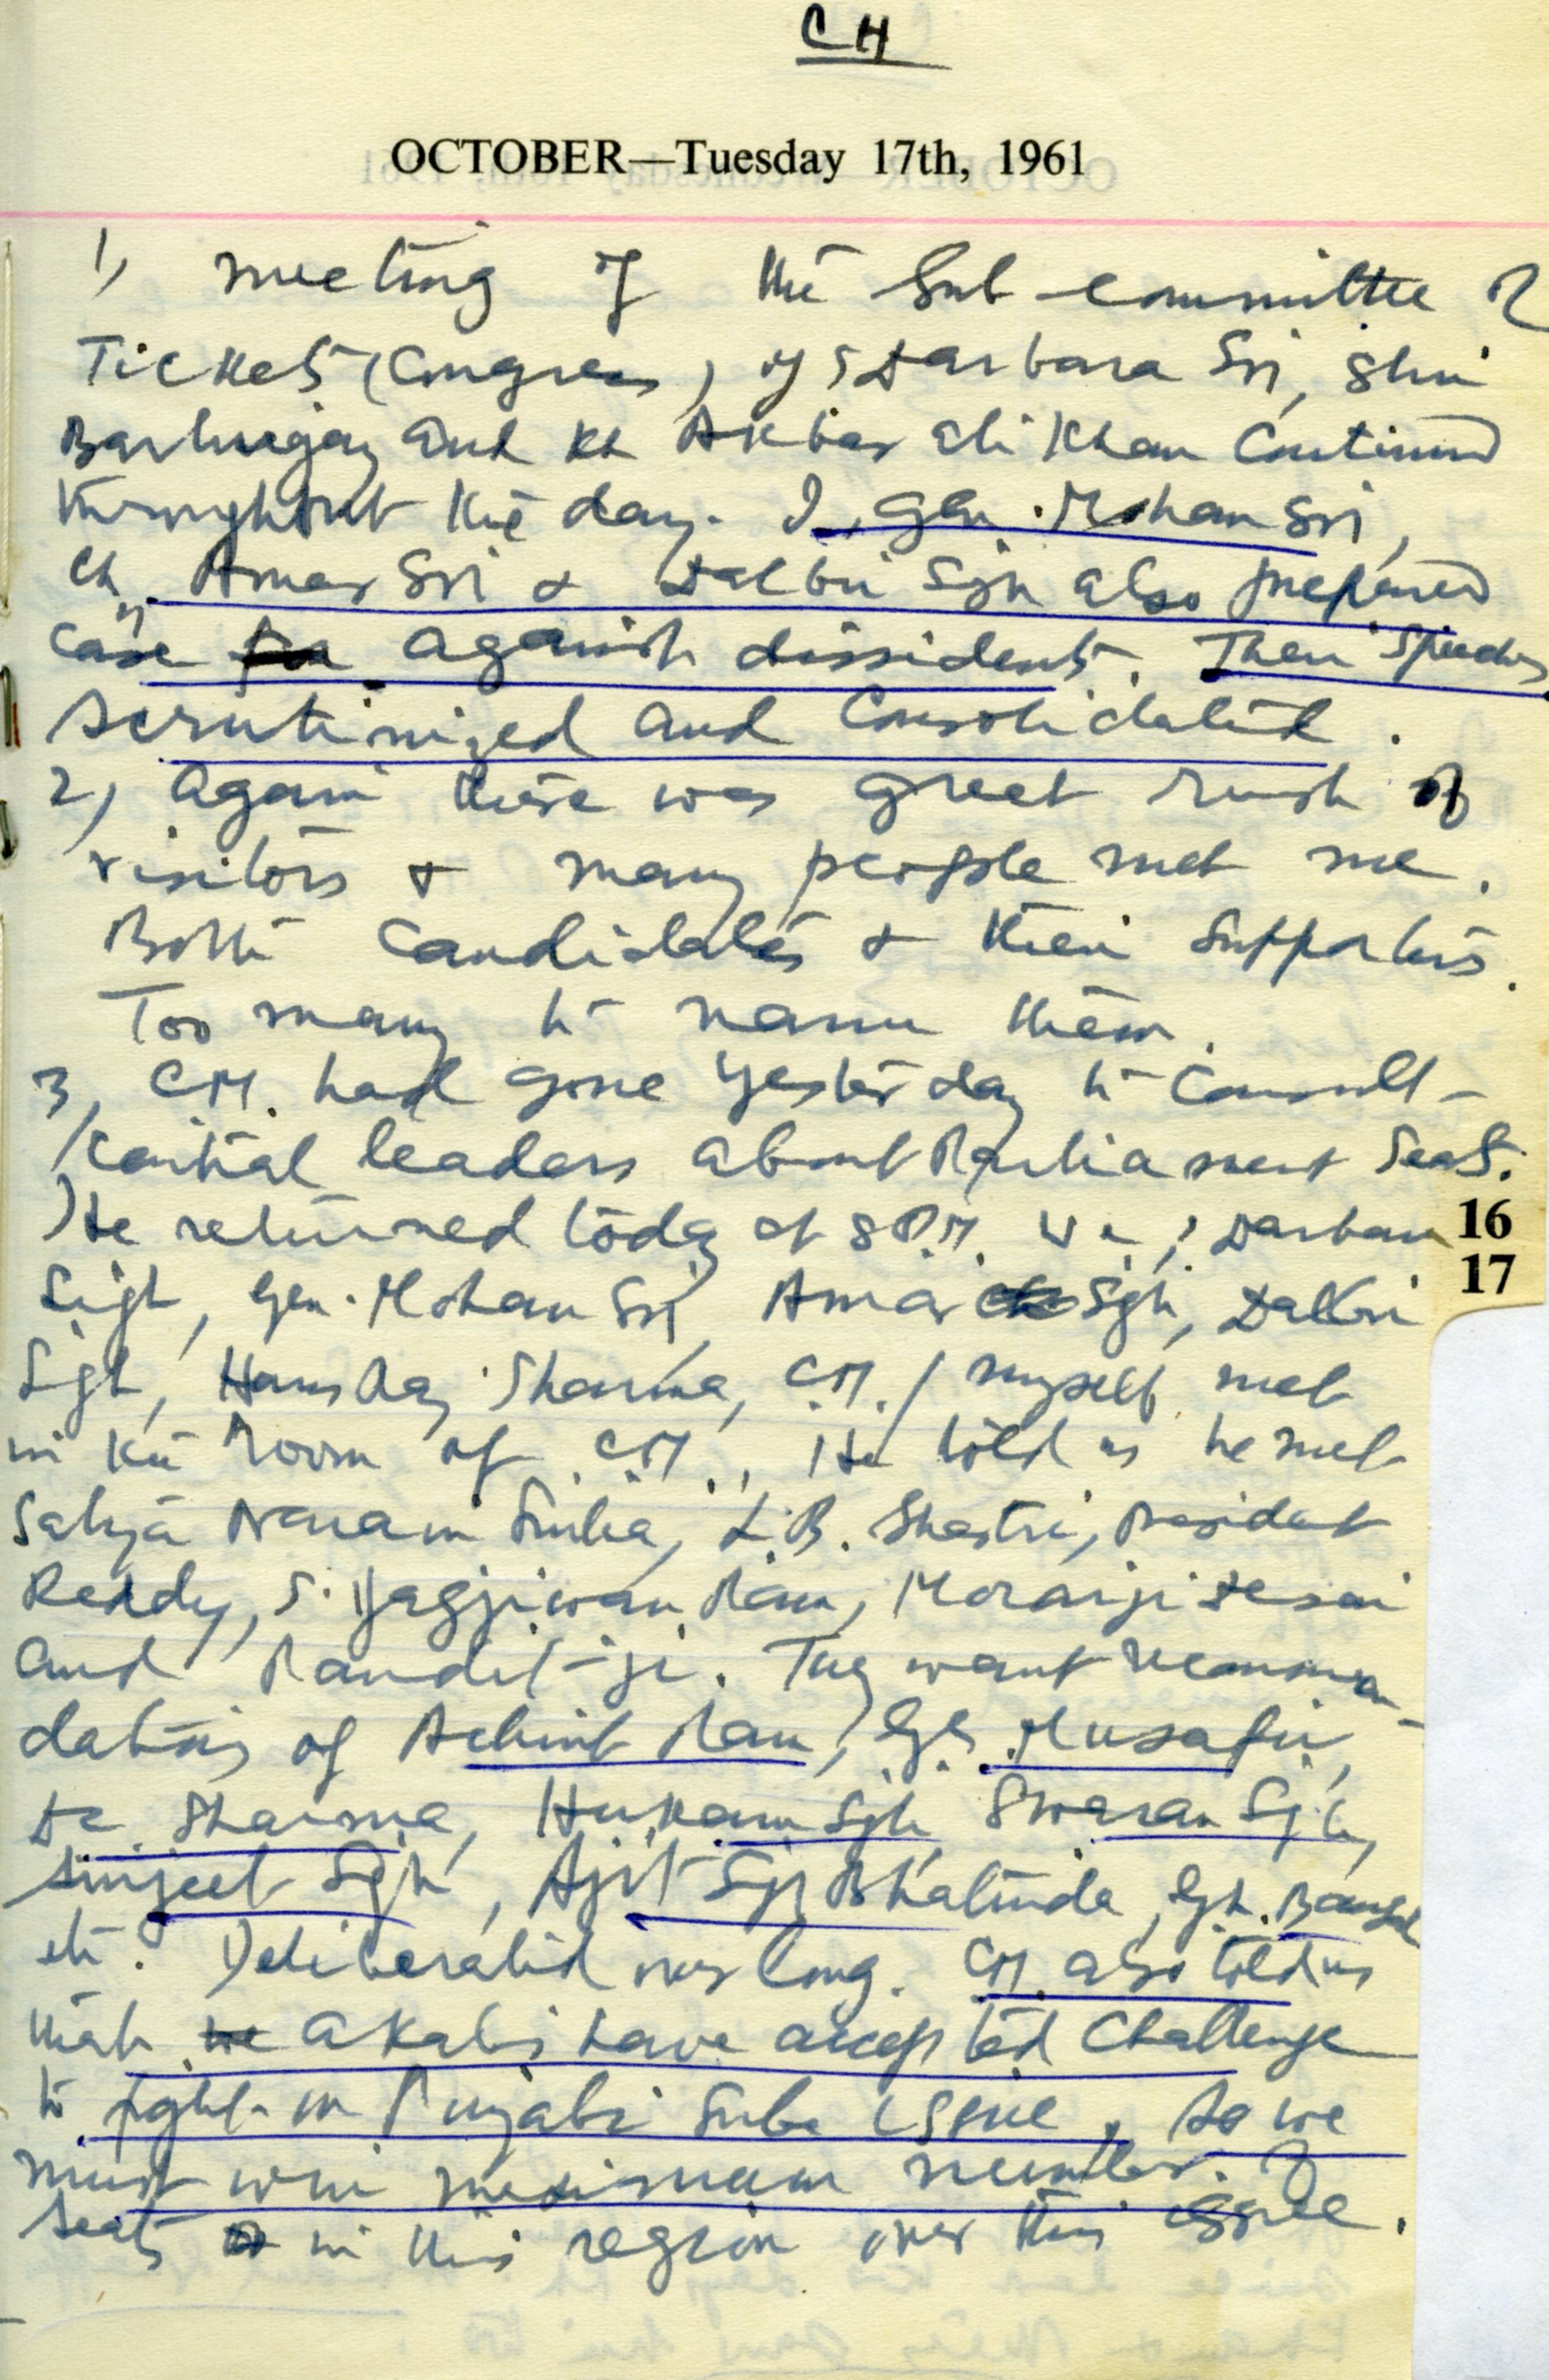 CH
OCTOBER—Tuesday 17th, 1961
1) meeting of the Sub-committee of
Tickets (Congress) of S Darbara Sri, Shri
and Kh Akbar Ali Khan Continued
throughout the day. I, Gen. Mohan Sri,
Ch. Amar Sri & Dalbir Sgh also prepared
case against dissidents. Their speeches
scrutinized and Consolidated.
2) Again there was great rush of
visitors & many people met me.
Both Candidates & their Supporters.
Too many to name them.
3, C.M. had gone yesterday to Consult-
Central leaders about Parliament Seats.
He returned today at 8 P.M. We, Darbara
16
Sigh, Gen. Mohan Sri, Amar Sgh, Dalbir
17
Sgh, Hans Raj Sharma, C.M. / myself met
in the room of C.M. He told us he met
Satya Narain Sinha, L.B. Shastri, President
Reddy, S. Jagjiwan Ram, Morarji Desai
and Pandit-ji. They want recommen-
dations of Achint Ram, G.S. Musafir,
D.C. Sharma, Hukam Sgh, Swaran Sgh,
Surjeet Sgh, Ajit Sgh Bhatinda, Bansal
etc. Deliberated over long. CM also told us
that Akalis have accepted Challenge
to fight on Punjabi Suba issue, so we
must win maximum number of
seats in this region over this issue.